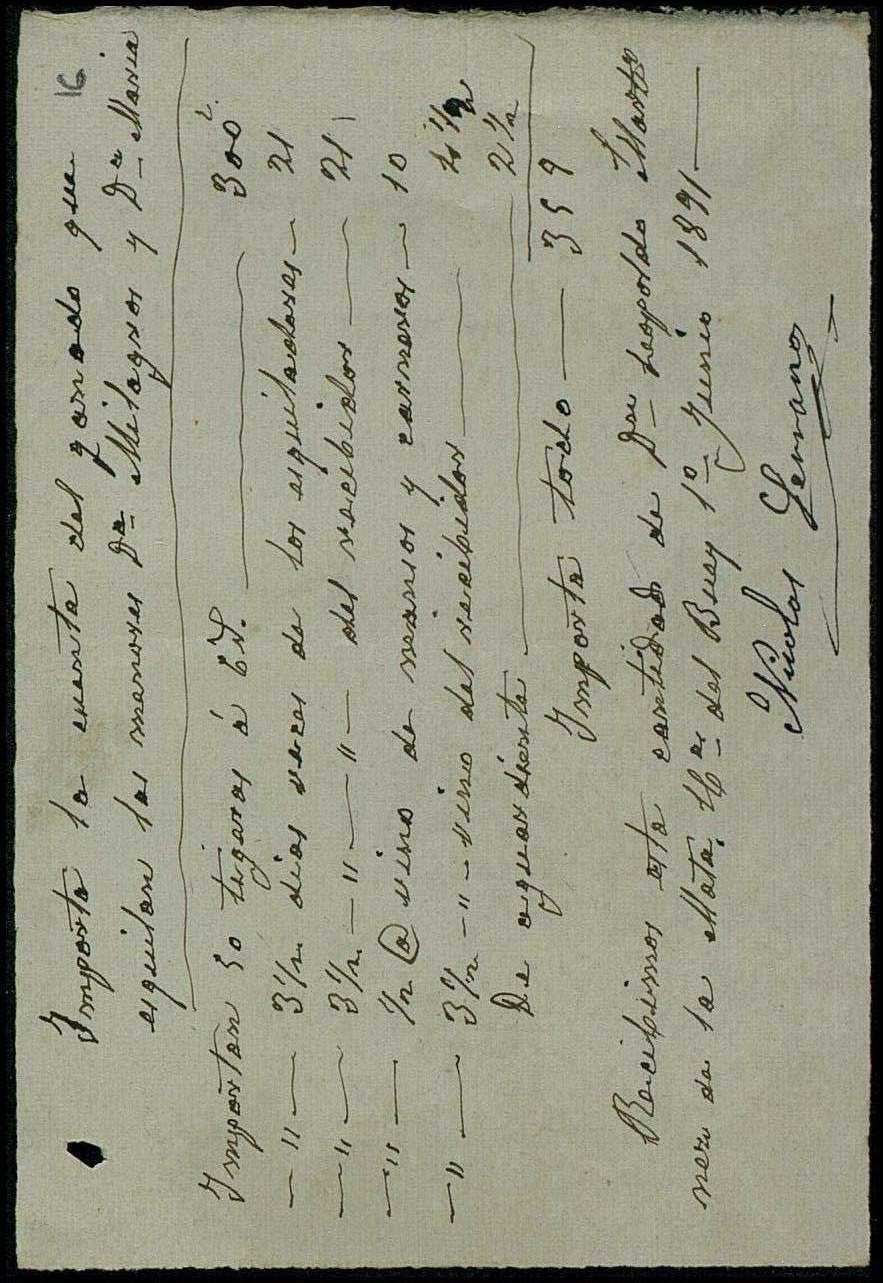 16
Importa la cuenta del ganado que
esquilan las menores Dª Milagros y Dª Maria
Importan 50 tigeras á 6 r. — 300 r.
— " — 3 1/2 dias veces de los esquiladores — 21
— " — 3 1/2 — " — " — del recibidor — 21
— " — 1/2 @ vino de y carneros — 10
— " — 3 1/2 — " — vino del recibidor — 4 1/2
De aguardiente — 2 1/2
Importa todo — 359
Recibimos esta cantidad de Dn Leopoldo Marti
nez de la Mata. Hª del Buey 1º Junio 1891 —
Nicolas Serrano